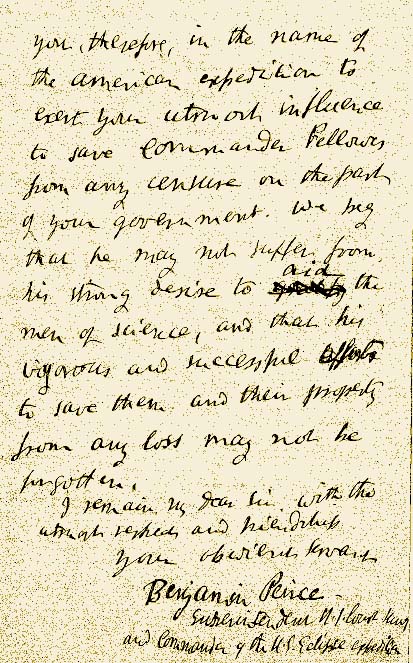 you, therefore, in the name of
the american expedition to
exert your utmost influence
to save Commander Fellowes
from any censure on the part
of your government. We beg
that he may not suffer from
his strong desire to aid the
men of science, and that his
vigorous and successful efforts
to save them and their property
from any loss may not be
forgotten.
I remain, my dear Sir, with the
utmost respects and friendship
your obedient servant
Benjamin Peirce
Superintendent U.S. Coast Survey
and Commander of the U.S. Eclipse expedition